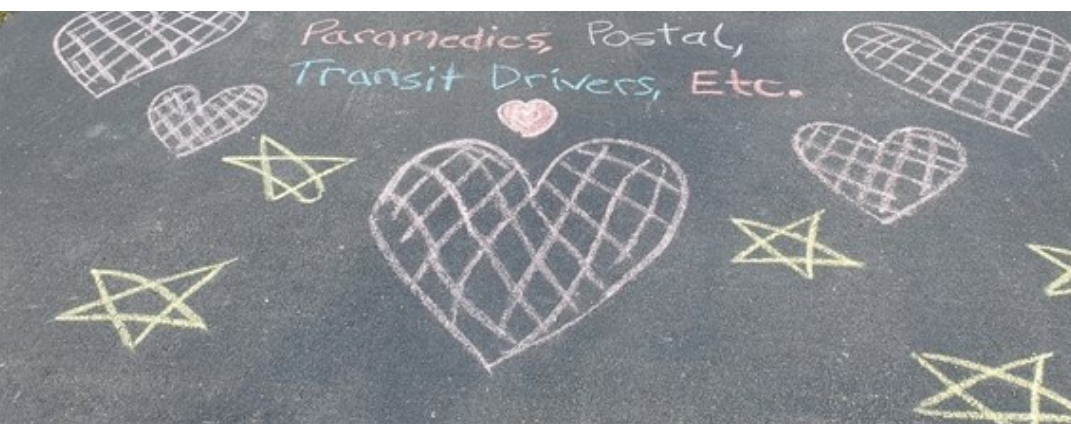 Paramedics, Postal,
Transit Drivers, Etc.